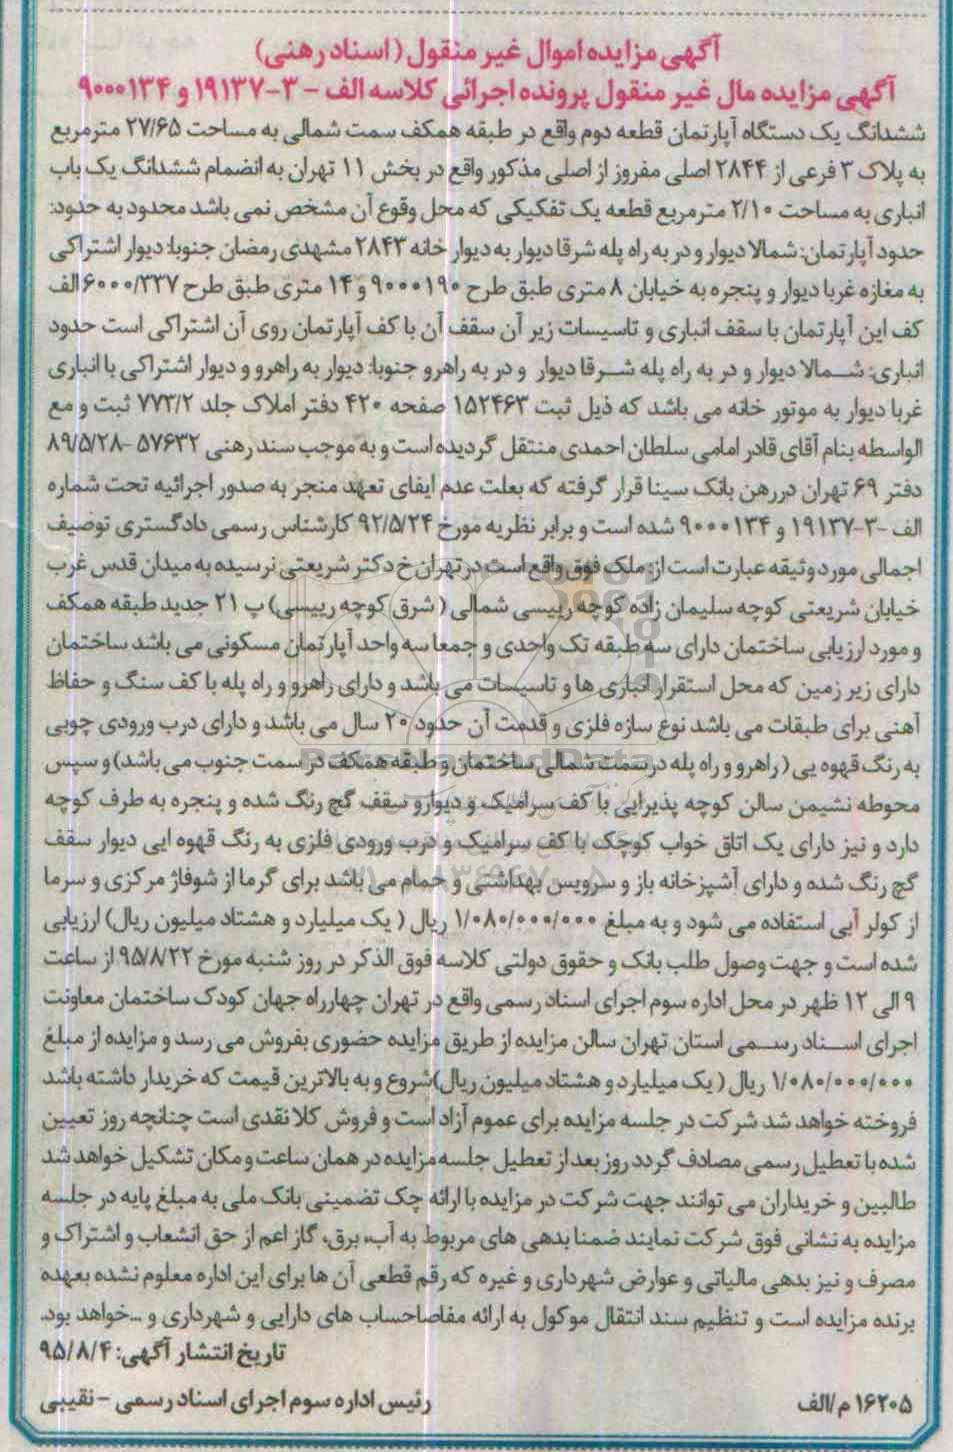 آگهی مزایده اموال غیر منقول (اسناد رهنی)
آگهی مزایده مال غیر منقول پرونده اجرائی کلاسه الف - ۳-۱۹۱۳۷ و ۹۰۰۰۱۳۴
ششدانگ یک دستگاه آپارتمان قطعه دوم واقع در طبقه همکف سمت شمالی به مساحت ۲۷/۶۵ مترمربع
به پلاک ۳ فرعی از ۲۸۴۴ اصلی مفروز از اصلی مذکور واقع در بخش ۱۱ تهران به انضمام ششدانگ یک باب
انباری به مساحت ۲/۱۰ مترمربع قطعه یک تفکیکی که محل وقوع آن مشخص نمی باشد محدود به حدود:
حدود آپارتمان: شمالا دیوار و در به راه پله شرقا دیوار به دیوار خانه ۲۸۴۳ مشهدی رمضان جنوبا: دیوار اشتراکی
به مغازه غربا دیوار و پنجره به خیابان ۸ متری طبق طرح ۹۰۰۰۱۹۰ و ۱۴ متری طبق طرح ۶۰۰۰/۳۳۷ الف
کف این آپارتمان با سقف انباری و تاسیسات زیر آن سقف آن با کف آپارتمان روی آن اشتراکی است حدود
انباری: شمالا دیوار و در به راه پله شرقا دیوار و در به راهرو جنوبا: دیوار به راهرو و دیوار اشتراکی با انباری
غربا دیوار به موتور خانه می باشد که ذیل ثبت ۱۵۲۴۶۳ صفحه ۴۲۰ دفتر املاک جلد ۷۷۳/۲ ثبت و مع
الواسطه بنام آقای قادر امامی سلطان احمدی منتقل گردیده است و به موجب سند رهنی ۵۷۶۳۲ -۸۹/۵/۲۸
دفتر ۶۹ تهران دررهن بانک سینا قرار گرفته که بعلت عدم ایفای تعهد منجر به صدور اجرائیه تحت شماره
الف -۳-۱۹۱۳۷ و ۹۰۰۰۱۳۴ شده است و برابر نظریه مورخ ۹۲/۵/۲۴ کارشناس رسمی دادگستری توصیف
اجمالی مورد وثیقه عبارت است از: ملک فوق واقع است در تهران خ دکتر شریعتی نرسیده به میدان قدس غرب
خیابان شریعتی کوچه سلیمان زاده کوچه رییسی شمالی ( شرق کوچه رییسی) پ ۲۱ جدید طبقه همکف
و مورد ارزیابی ساختمان دارای سه طبقه تک واحدی و جمعا سه واحد آپارتمان مسکونی می باشد ساختمان
دارای زیر زمین که محل استقرار انباری ها و تاسیسات می باشد و دارای راهرو و راه پله با کف سنگ و حفاظ
آهنی برای طبقات می باشد نوع سازه فلزی و قدمت آن حدود ۲۰ سال می باشد و دارای درب ورودی چوبی
به رنگ قهوه یی ( راهرو و راه پله درسمت شمالی ساختمان و طبقه همکف در سمت جنوب می باشد) و سپس
محوطه نشیمن سالن کوچه پذیرایی با کف سرامیک و دیوارو سقف گچ رنگ شده و پنجره به طرف کوچه
دارد و نیز دارای یک اتاق خواب کوچک با کف سرامیک و درب ورودی فلزی به رنگ قهوه ایی دیوار سقف
گچ رنگ شده و دارای آشپزخانه باز و سرویس بهداشتی و حمام می باشد برای گرما از شوفاژ مرکزی و سرما
از کولر آبی استفاده می شود و به مبلغ ۱/۰۸۰/۰۰۰/۰۰۰ ریال ( یک میلیارد و هشتاد میلیون ریال) ارزیابی
شده است و جهت وصول طلب بانک و حقوق دولتی کلاسه فوق الذکر در روز شنبه مورخ ۹۵/۸/۲۲ از ساعت
۹ الی ۱۲ ظهر در محل اداره سوم اجرای اسناد رسمی واقع در تهران چهارراه جهان کودک ساختمان معاونت
اجرای اسناد رسمی استان تهران سالن مزایده از طریق مزایده حضوری بفروش می رسد و مزایده از مبلغ
۱/۰۸۰/۰۰۰/۰۰۰ ریال ( یک میلیارد و هشتاد میلیون ریال) شروع و به بالاترین قیمت که خریدار داشته باشد
فروخته خواهد شد شرکت در جلسه مزایده برای عموم آزاد است و فروش کلا نقدی است چنانچه روز تعیین
شده با تعطیل رسمی مصادف گردد روز بعد از تعطیل جلسه مزایده در همان ساعت و مکان تشکیل خواهد شد
طالبین و خریداران می توانند جهت شرکت در مزایده با ارائه چک تضمینی بانک ملی به مبلغ پایه در جلسه
مزایده به نشانی فوق شرکت نمایند ضمنا بدهی های مربوط به آب، برق، گاز اعم از حق انشعاب و اشتراک و
مصرف و نیز بدهی مالیاتی و عوارض شهرداری و غیره که رقم قطعی آن ها برای این اداره معلوم نشده بعهده
برنده مزایده است و تنظیم سند انتقال موکول به ارائه مفاصاحساب های دارایی و شهرداری و ...خواهد بود.
تاریخ انتشار آگهی: ۹۵/۸/۴
رئیس اداره سوم اجرای اسناد رسمی - نقیبی
۱۶۲۰۵ م/الف